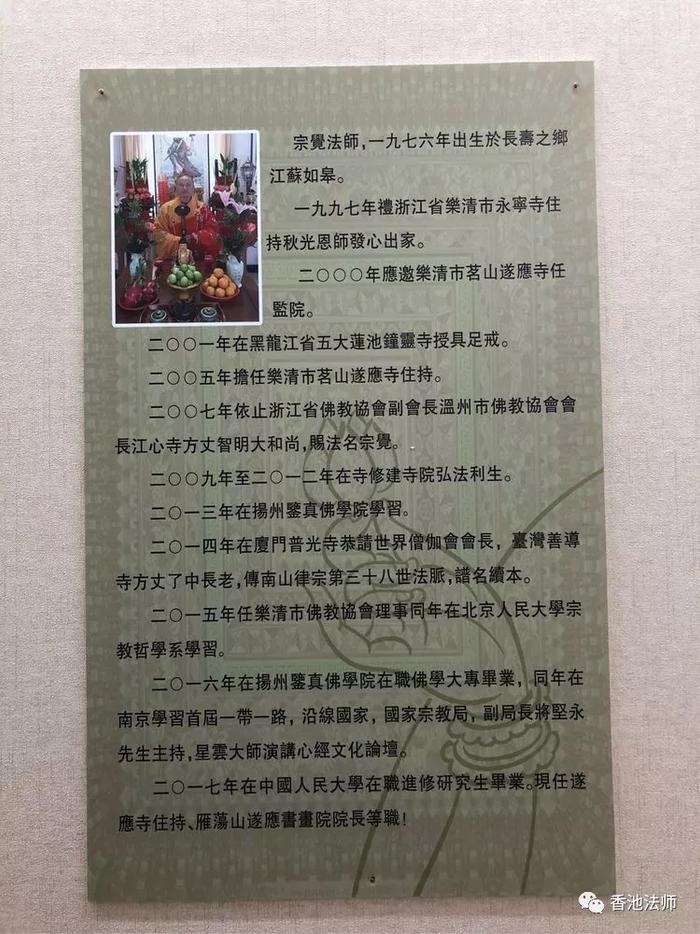 宗覺法師,一九七六年出生於長壽之鄉
江蘇如皋。
一九九七年禮浙江省樂清市永寧寺住
持秋光恩師發心出家。
二〇〇〇年應邀樂清市茗山遂應寺任
監院。
二〇〇一年在黑龍江省五大蓮池鐘靈寺授具足戒。
二〇〇五年擔任樂清市茗山遂應寺住持。
二〇〇七年依止浙江省佛教協會副會長溫州市佛教協會會
長江心寺方丈智明大和尚,賜法名宗覺。
二〇〇九年至二〇一二年在寺修建寺院弘法利生。
二〇一三年在揚州鑒真佛學院學習。
二〇一四年在廈門普光寺恭請世界僧伽會會長，臺灣善導
寺方丈了中長老,傳南山律宗第三十八世法脈,譜名續本。
二〇一五年任樂清市佛教協會理事同年在北京人民大學宗
教哲學系學習。
二〇一六年在揚州鑒真佛學院在職佛學大專畢業，同年在
南京學習首屆一帶一路，沿線國家，國家宗教局，副局長將堅永
先生主持,星雲大師演講心經文化論壇。
二〇一七年在中國人民大學在職進修研究生畢業。現任遂
應寺住持、雁蕩山遂應書畫院院長等職!
香池法师